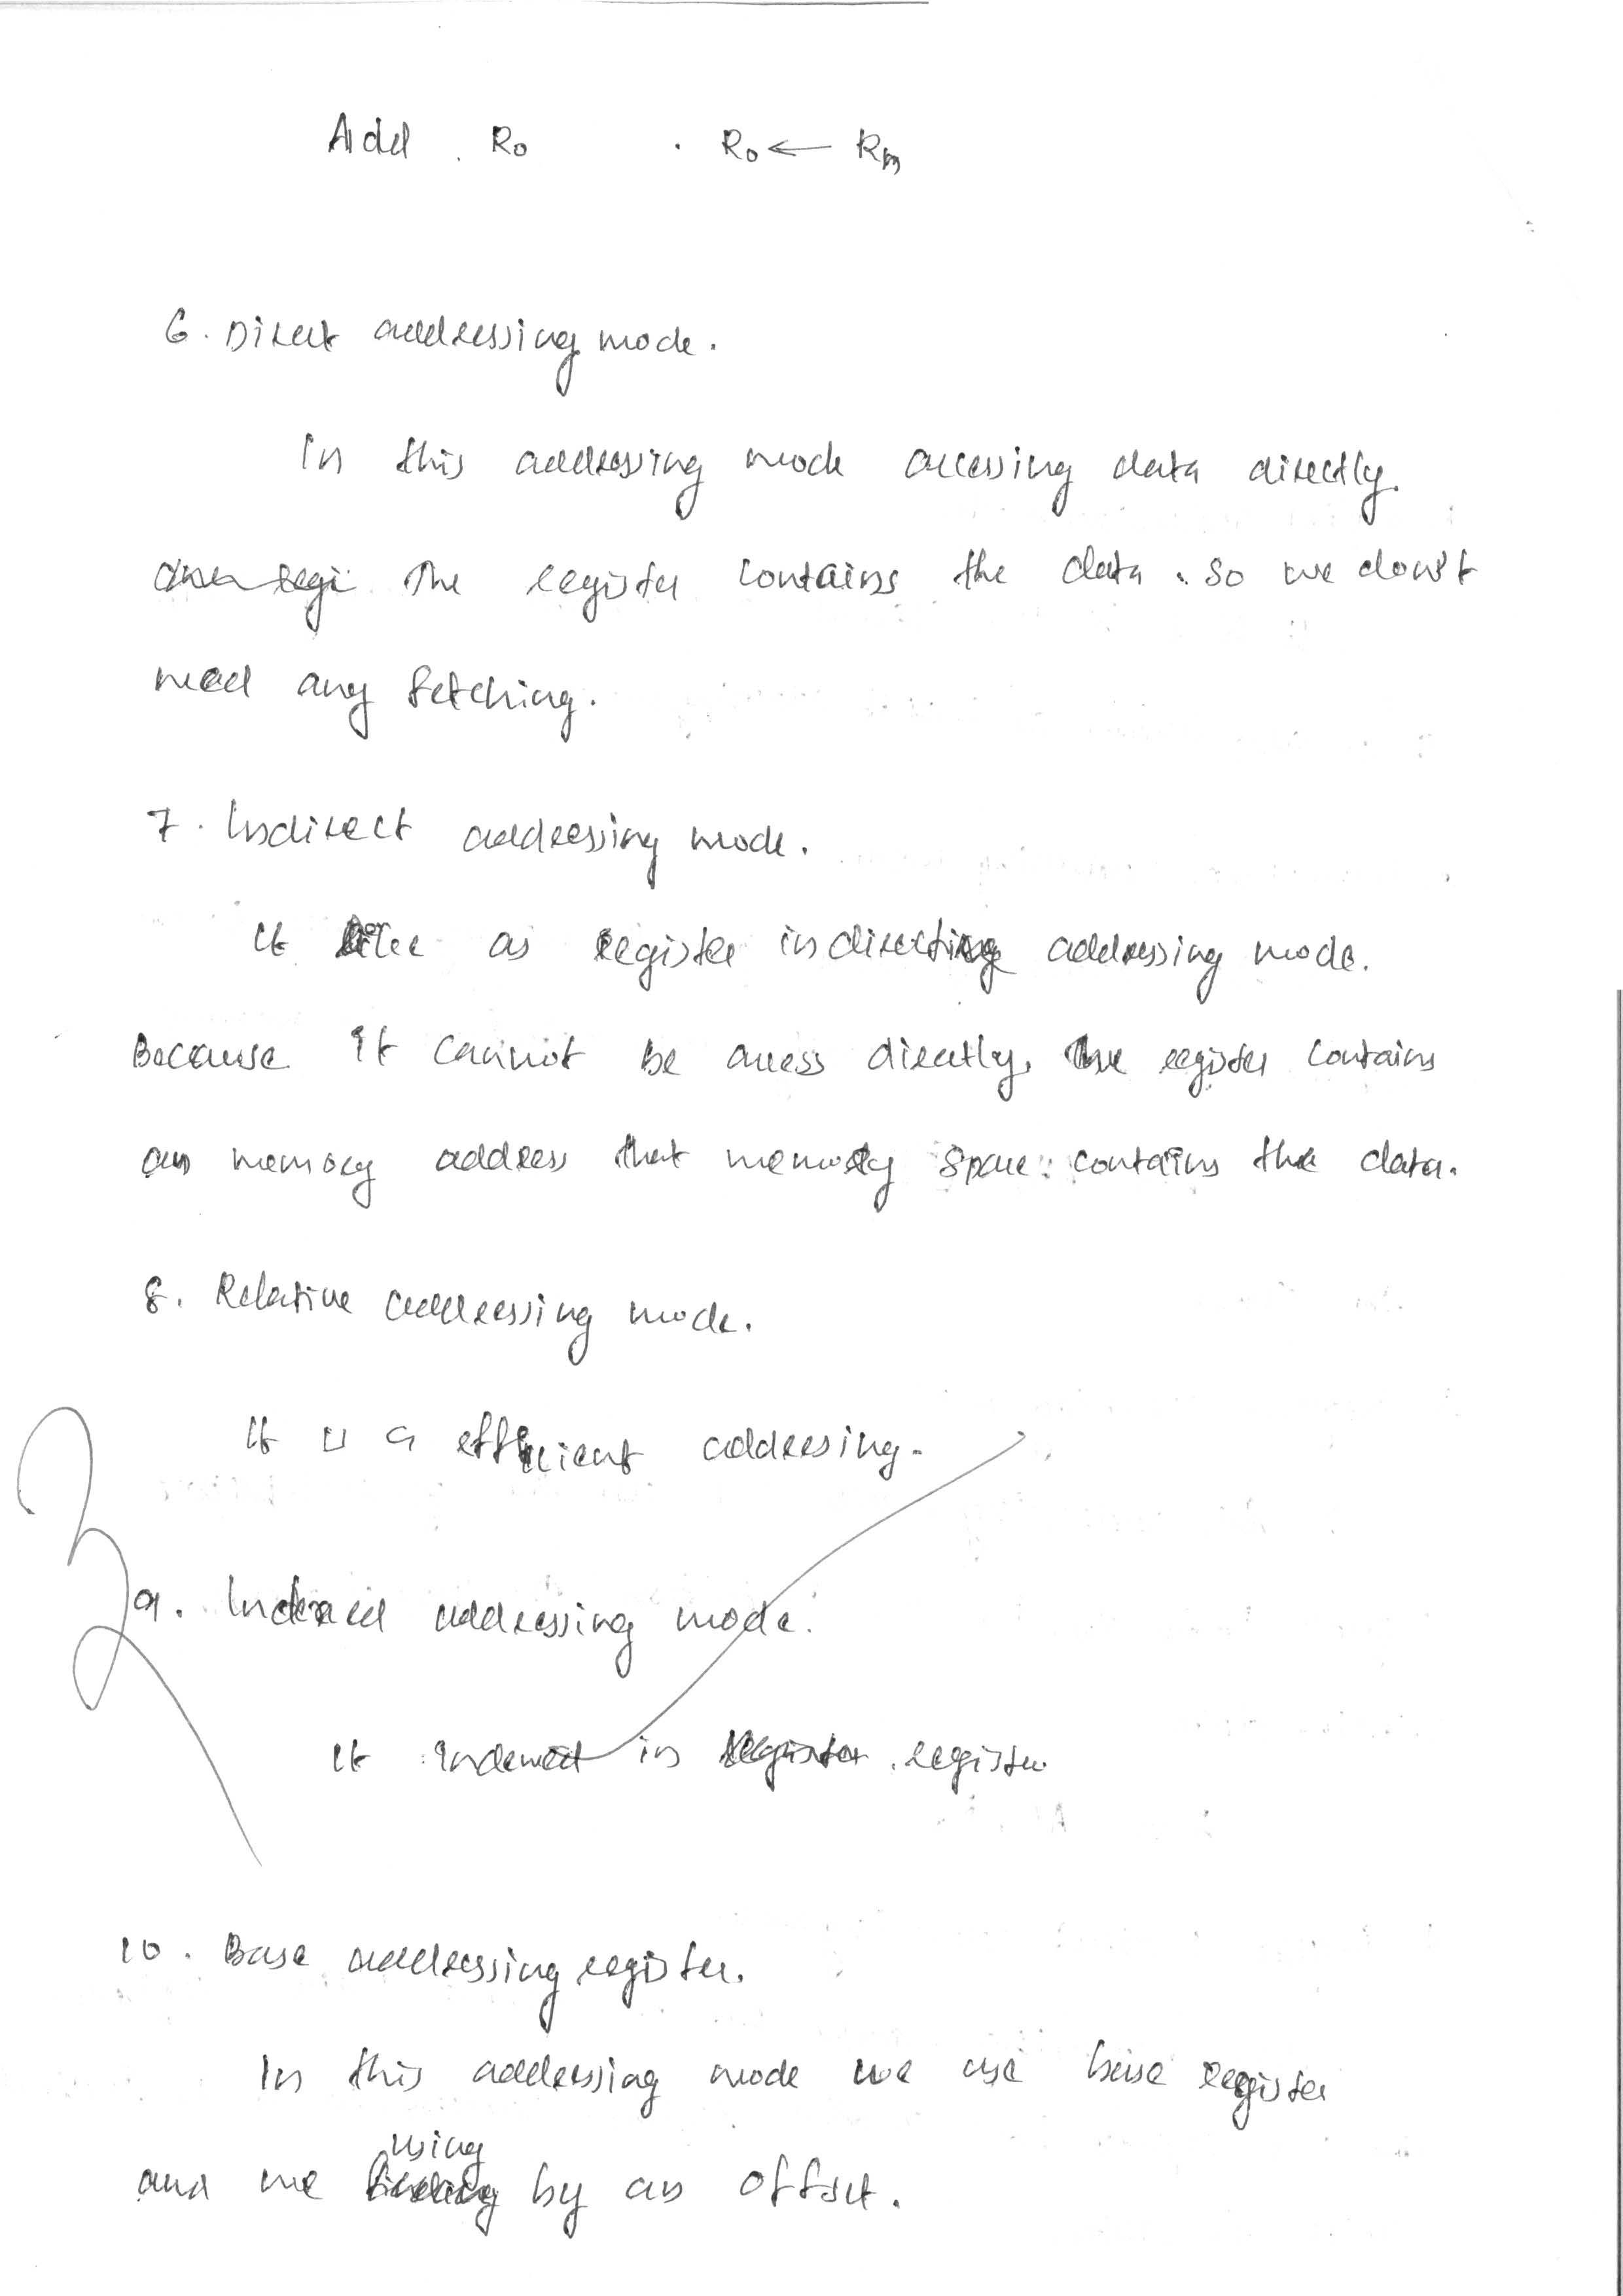 Add . R0 . R0 ← Rm
6. Direct addressing mode.
In this addressing mode accessing data directly.
The register contains the data. So we don't
need any fetching.
7. Indirect addressing mode.
It as register indirecting addressing mode.
Because it cannot be access directly, the register contains
an memory address that memory space contains the data.
8. Relative addressing mode.
It is a efficient addressing.
9. Indexed addressing mode.
It in register
10. Base addressing register.
In this addressing mode we use base register
using
and we by an offset.